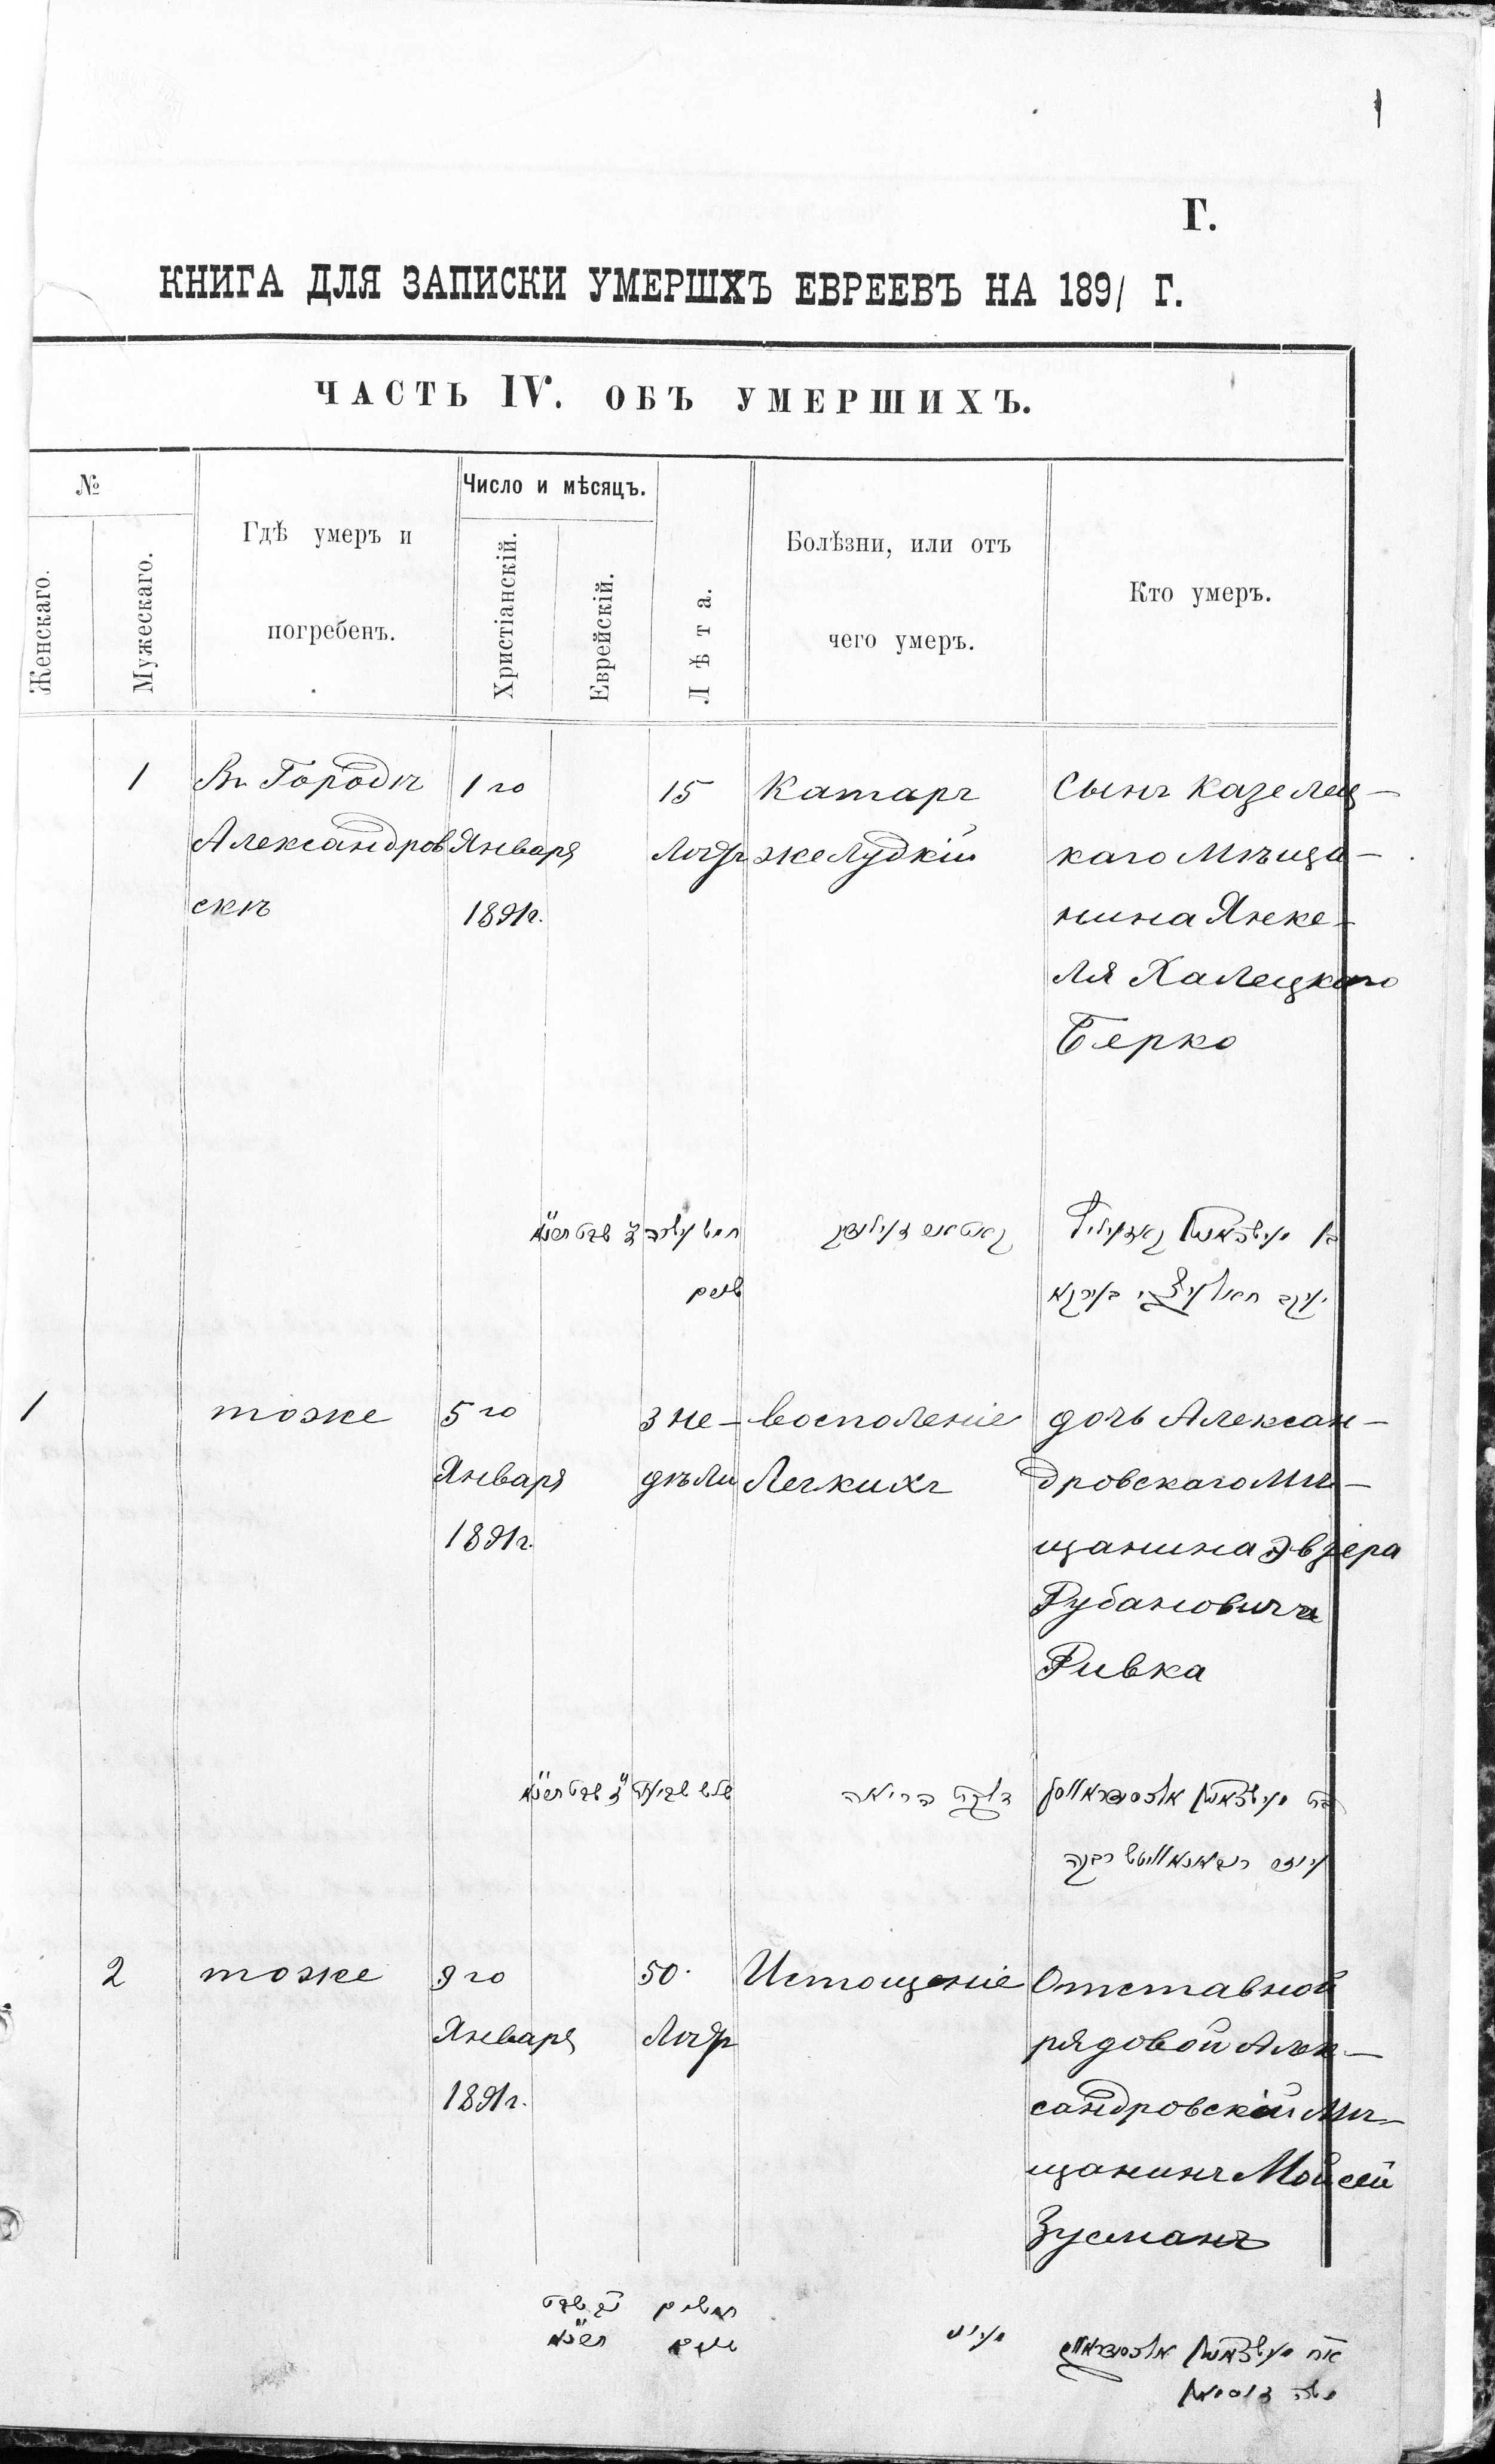 Г.
КНИГА ДЛЯ ЗАПИСКИ УМЕРШХЪ ЕВРЕЕВЪ НА 1891 Г.
ЧАСТЬ IV. ОБЪ УМЕРШИХЪ.
№
Женскаго.
Мужескаго.
Гдѣ умеръ и
погребенъ.
Число и мѣсяцъ.
Христіанскій.
Еврейскій.
Лѣта.
Болѣзни, или отъ
чего умеръ.
Кто умеръ.
1
Въ Городѣ
Александров
скѣ
1го
Января
1891г.
15
Лѣтъ
Катаръ
желудкій
Сынъ Казелец-
каго Мѣща-
нина Янке-
ля Халецкаго
Берко
שבט תרנא
חמש עשרה
שנים
בן
יעקב בערקא
1
тоже
5го
Января
1891г.
3 не-
дѣли
Восполеніе
Легкихъ
дочь Алексан-
дровскаго Мѣ-
щанина Эвзера
Рубановича
Ривка
שבט תרנא
דלקת הריאה
בת
רבקה
2
тоже
9го
Января
1891г.
50.
Лѣтъ
Истощеніе
Отставной
рядовой Алек-
сандровскій Мѣ-
щанинъ Мойсей
Зусманъ
שבט
תרנא
חמשים
משה זוסמאן